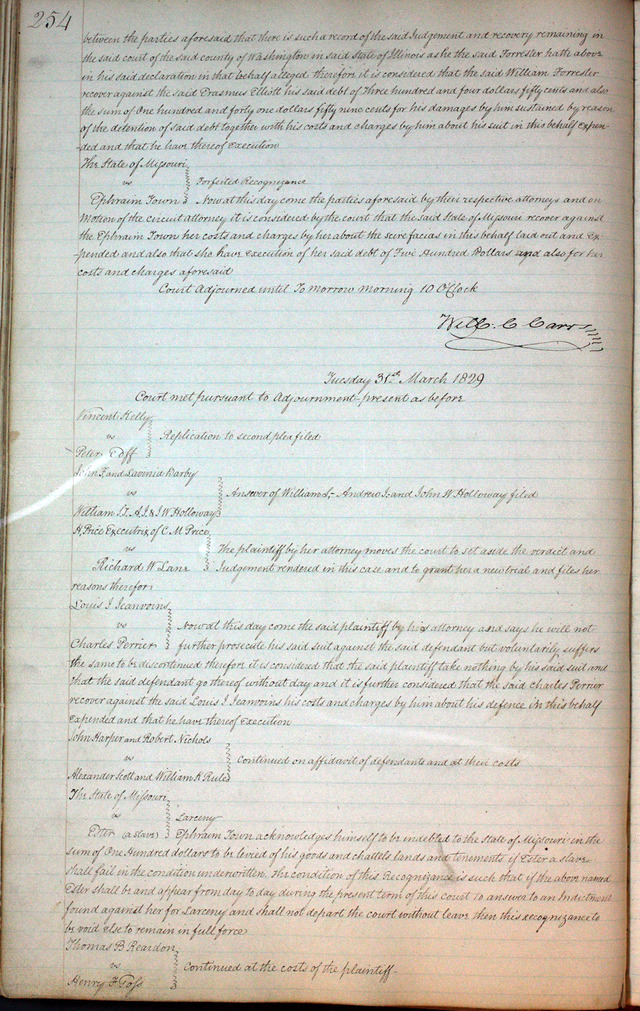 254
between the parties aforesaid that there is such a record of the said Judgement and recovery remaining in
the said court of the said county of Washington in said State of Illinois as he the said Forrester hath above
in his said declaration in that behalf alleged therefore it is considered that the said William Forrester
recover against the said Erasmus Elliott his said debt of three hundred and four dollars fifty cents and also
the sum of One hundred and forty one dollars fifty nine cents for his damages by him sustained by reason
of the detention of said debt together with his costs and charges by him about his suit in this behalf expen-
ded and that he have thereof execution
The State of Missouri
vs
Forfeited Recognizance
Ephraim Town
Now at this day come the parties aforesaid by their respective attorneys and on
Motion of the circuit attorney it is considered by the court that the said State of Missouri recover against
the Ephraim Town her costs and charges by her about the scire facias in this behalf laid out and Ex-
pended and also that she have execution of her said debt of Five Hundred Dollars and also for her
costs and charges aforesaid
Court Adjourned until To morrow morning 10 O'Clock
Will. C Carr
Tuesday 31st March 1829
Court met pursuant to Adjournment present as before
Vincent Kelly
vs
Replication to second plea filed
Peter Goff
John F and Lavenia Darby
vs
Answer of William S- Andrew J: and John W Holloway filed
William S. A J & J W Holloway
H Price Executrix of C M Price
vs
The plaintiff by her attorney moves the court to set aside the verdict and
Richard W Lane
Judgement rendered in this case and to grant her a new trial and files her
reasons therefor
Louis J Jeanvoins
vs
Now at this day come the said plaintiff by his attorney and says he will not
Charles Perrier
further prosecute his said suit against the said defendant but voluntarily suffers
the same to be discontinued therefore it is considered that the said plaintiff take nothing by his said suit and
that the said defendant go thereof without day and it is further considered that the said Charles Perrier
recover against the said Louis J Jeanvoins his costs and charges by him about his defence in this behalf
Expended and that he have thereof Execution
John Harper and Robert Nichols
vs
Continued on affidavit of defendants and at their costs
Alexander Scott and William K Rule
The State of Missouri
vs
Larceny
Ester (a slave)
Ephraim Town acknowledges himself to be indebted to the State of Missouri in the
sum of One Hundred dollars to be levied of his goods and chattels lands and tenements if Ester a slave
shall fail in the condition underwritten. The condition of this Recognizance is such if the above named
Ester shall be and appear from day to day during the present term of this court to answer to an Indictment
found against her for Larceny and shall not depart the court without leave then this recognizance to
be void else to remain in full force
Thomas B Reardon
vs
Continued at the costs of the plaintiff-
Henry F